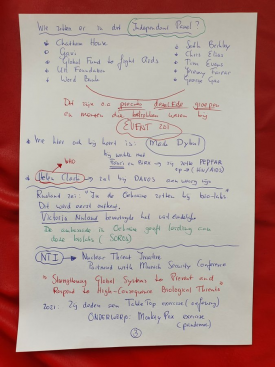 Wie zitten er in dit Independent Panel?
* Chatham House
* Gavi
* Global Fund to fight Aids
* UN Foundation
* World Bank
* Seth Berkley
* Chris Elias
* Tim Evans
* Jeremy Farrar
* George Gao
Dit zijn o.a. precies dezelfde groepen
en mensen die betrokken waren bij
EVENT 201
* Wie hier ook bij hoort is: Mark Dybul
WHO
* Helen Clark → zat bij DAVOS
Rusland zei: "In de Oekraïne zitten bio-labs"
Dit werd eerst ontkend.
Victoria Nuland bevestigde het uiteindelijk
De ambassade in Oekraïne
deze biolabs (SOROS)
NTI → Nuclear Threat Initiative
Partnered with Munich Security Conference
"Strengthening Global Systems to Prevent and
Respond to High-Consequence Biological Threats"
2021: Zij deden een TableTop exercise (oefening)
ONDERWERP: MonkeyPox exercise
(pandemie)
3